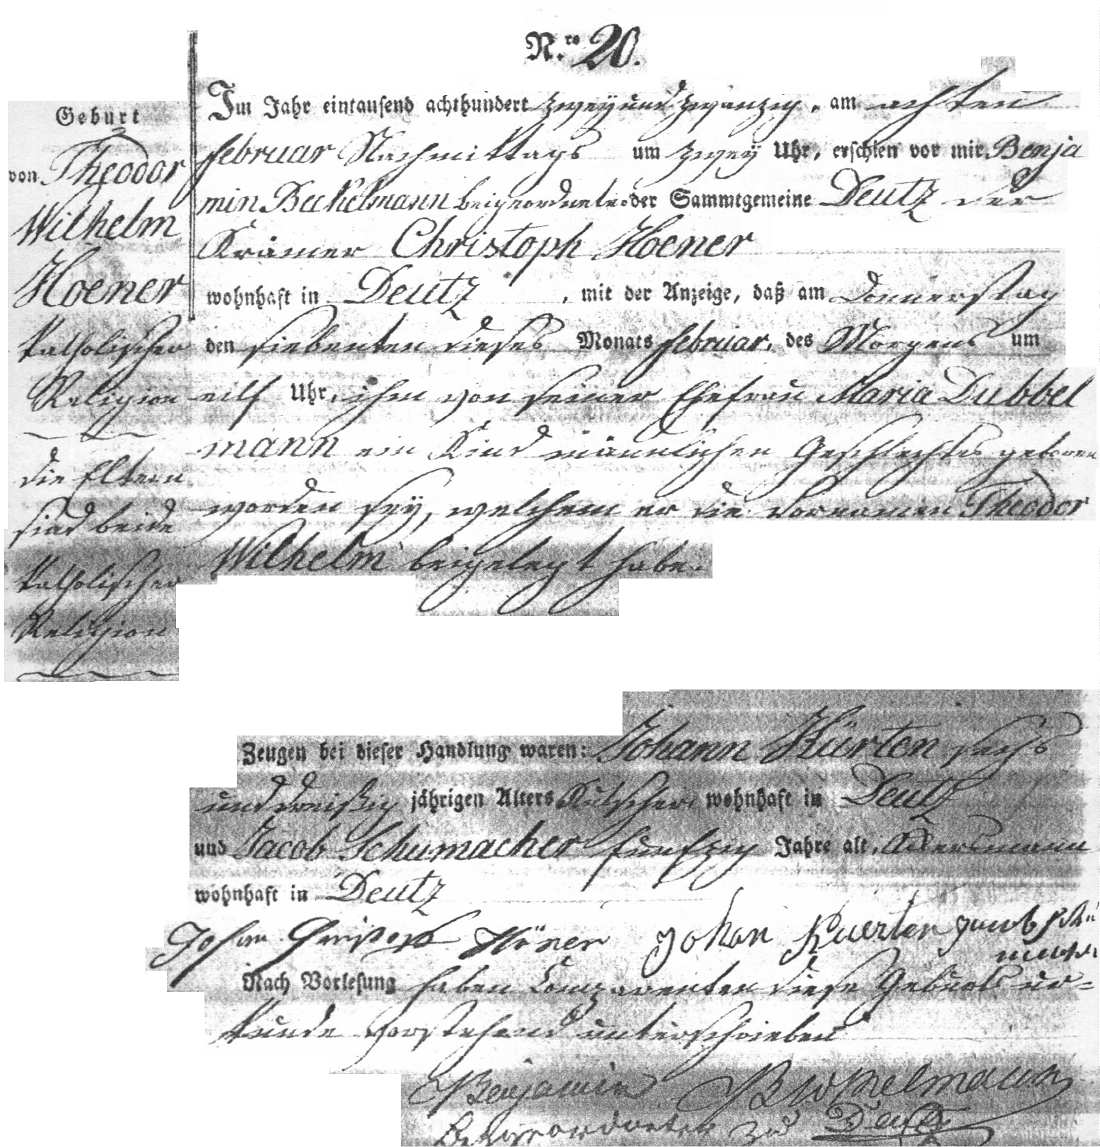 N.ro 20.
Geburt
von Theodor
Wilhelm
Hoener
katholischer
Religion
die Eltern
sind beide
katholischer
Religion
Im Jahr eintausend achthundert zwey und zwanzig, am achten
februar Nachmittags um zwey Uhr, erschien vor mir Benja
min Beckelmann beigeordneter der Sammtgemeine Deutz der
Krämer Christoph Hoener
wohnhaft in Deutz, mit der Anzeige, daß am Donnerstag
den siebenten dieses Monats februar, des Morgens um
eilf Uhr, ihm von seiner Ehefrau Maria Dubbel
mann ein Kind männlichen Geschlechtes geboren
worden sey, welchem er die Vornamen Theodor
Wilhelm beigelegt habe.
Zeugen bei dieser Handlung waren: Johann Kürten sechs
und dreißig jährigen Alters Kutscher wohnhaft in Deutz
und Jacob Schumacher fünfzig Jahre alt, Ackersmann
wohnhaft in Deutz
Johan Christoph Höner Johan Kuerten Jacob Schu
macher
Nach Vorlesung haben Comparenten diese Geburts ur=
kunde vorstehend unterschrieben
Benjamin Beckelmann
Beigeordneter zu Deutz